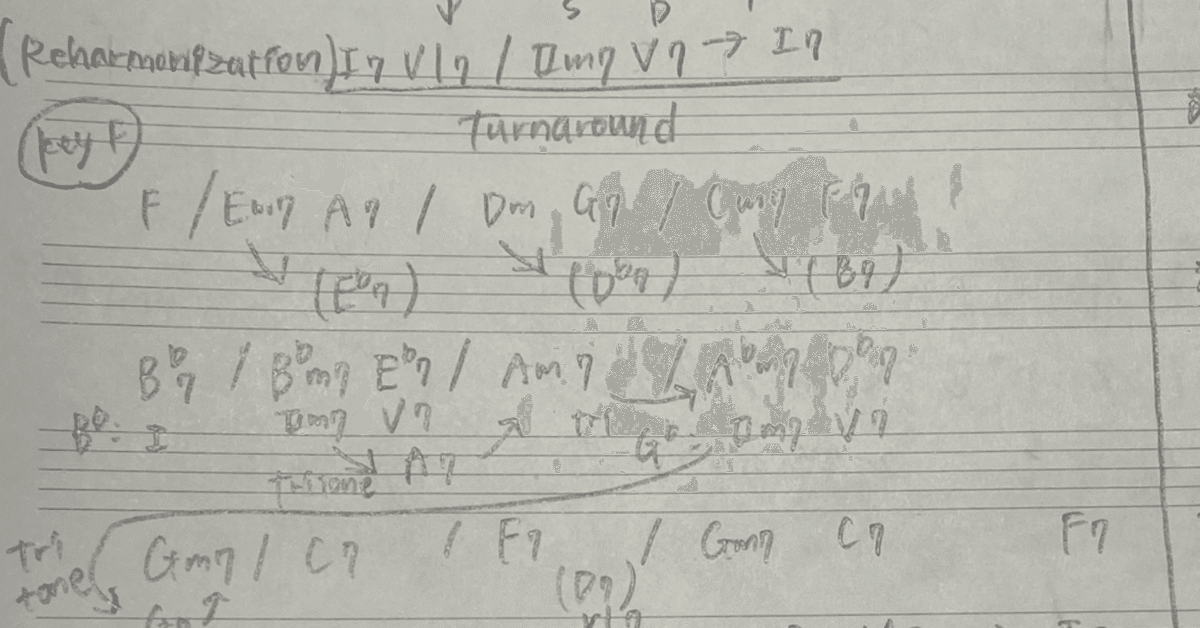 (Reharmonization) I7 VI7 / IIm7 V7 → I7
turnaround
key F
F / Em7 A7 / Dm G7 / Cm7 F7
(E♭7) (D♭7) (B7)
B♭7 / B♭m7 E♭7 / Am7 / A♭m7 D♭7
B♭: I IIm7 V7 G♭: IIm7 V7
tritone A7
Tri tone Gm7 / C7 / F7 / Gm7 C7 F7
(D7)
VI7